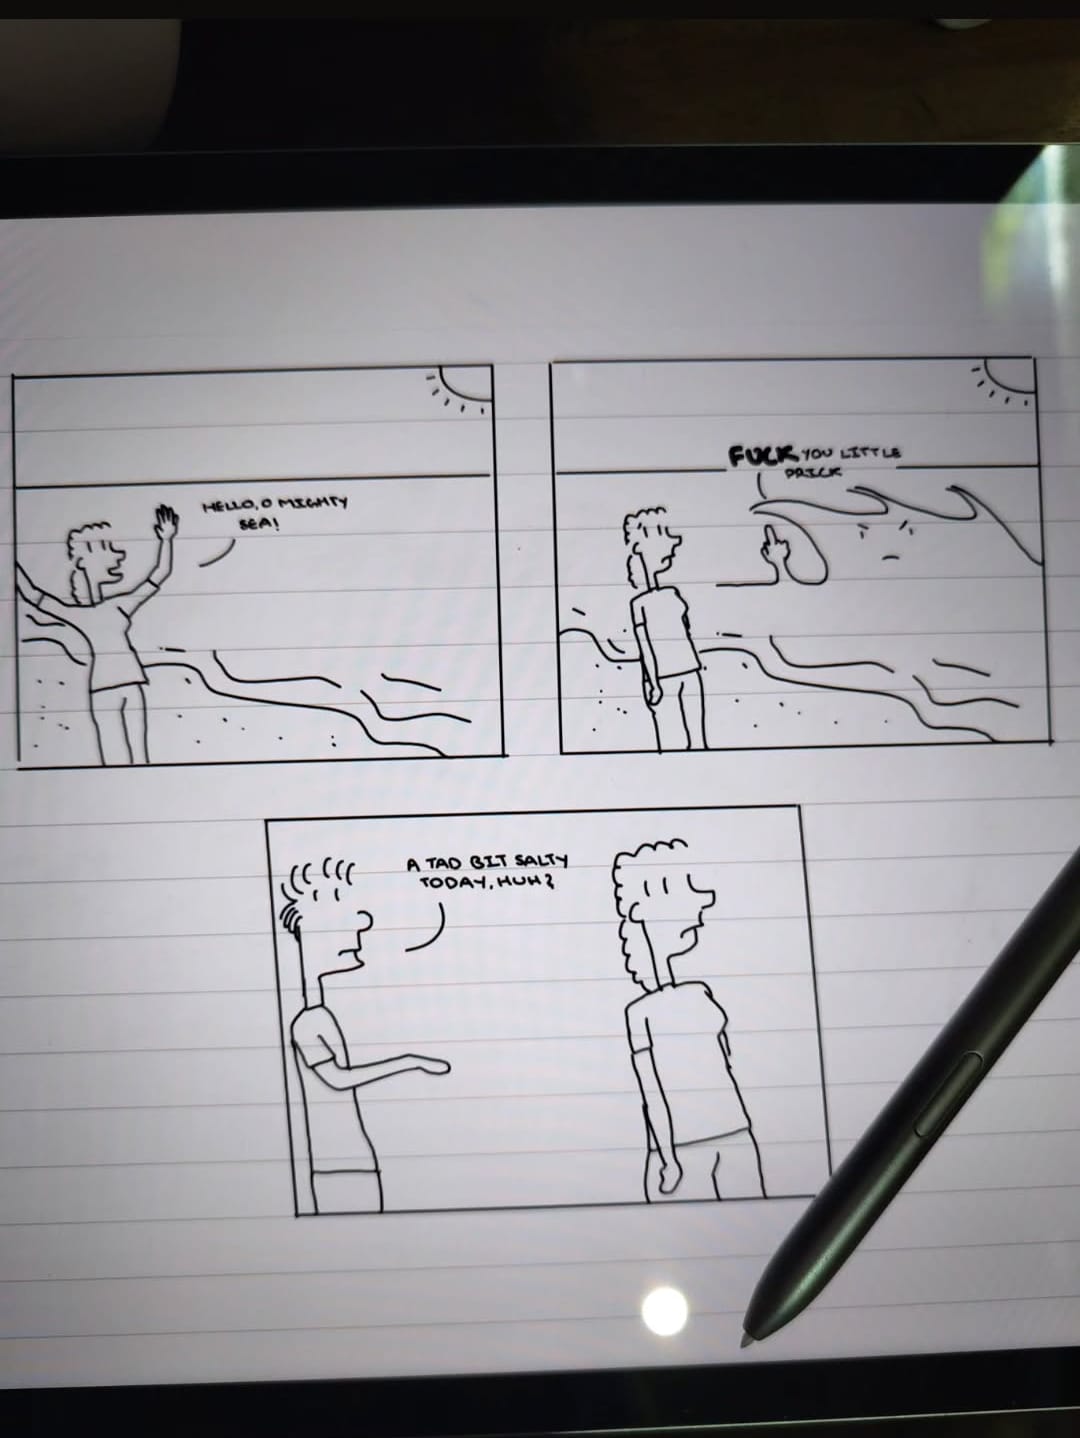 HELLO, O MIGHTY
SEA!
FUCK YOU LITTLE
PRICK
A TAD BIT SALTY
TODAY, HUH?